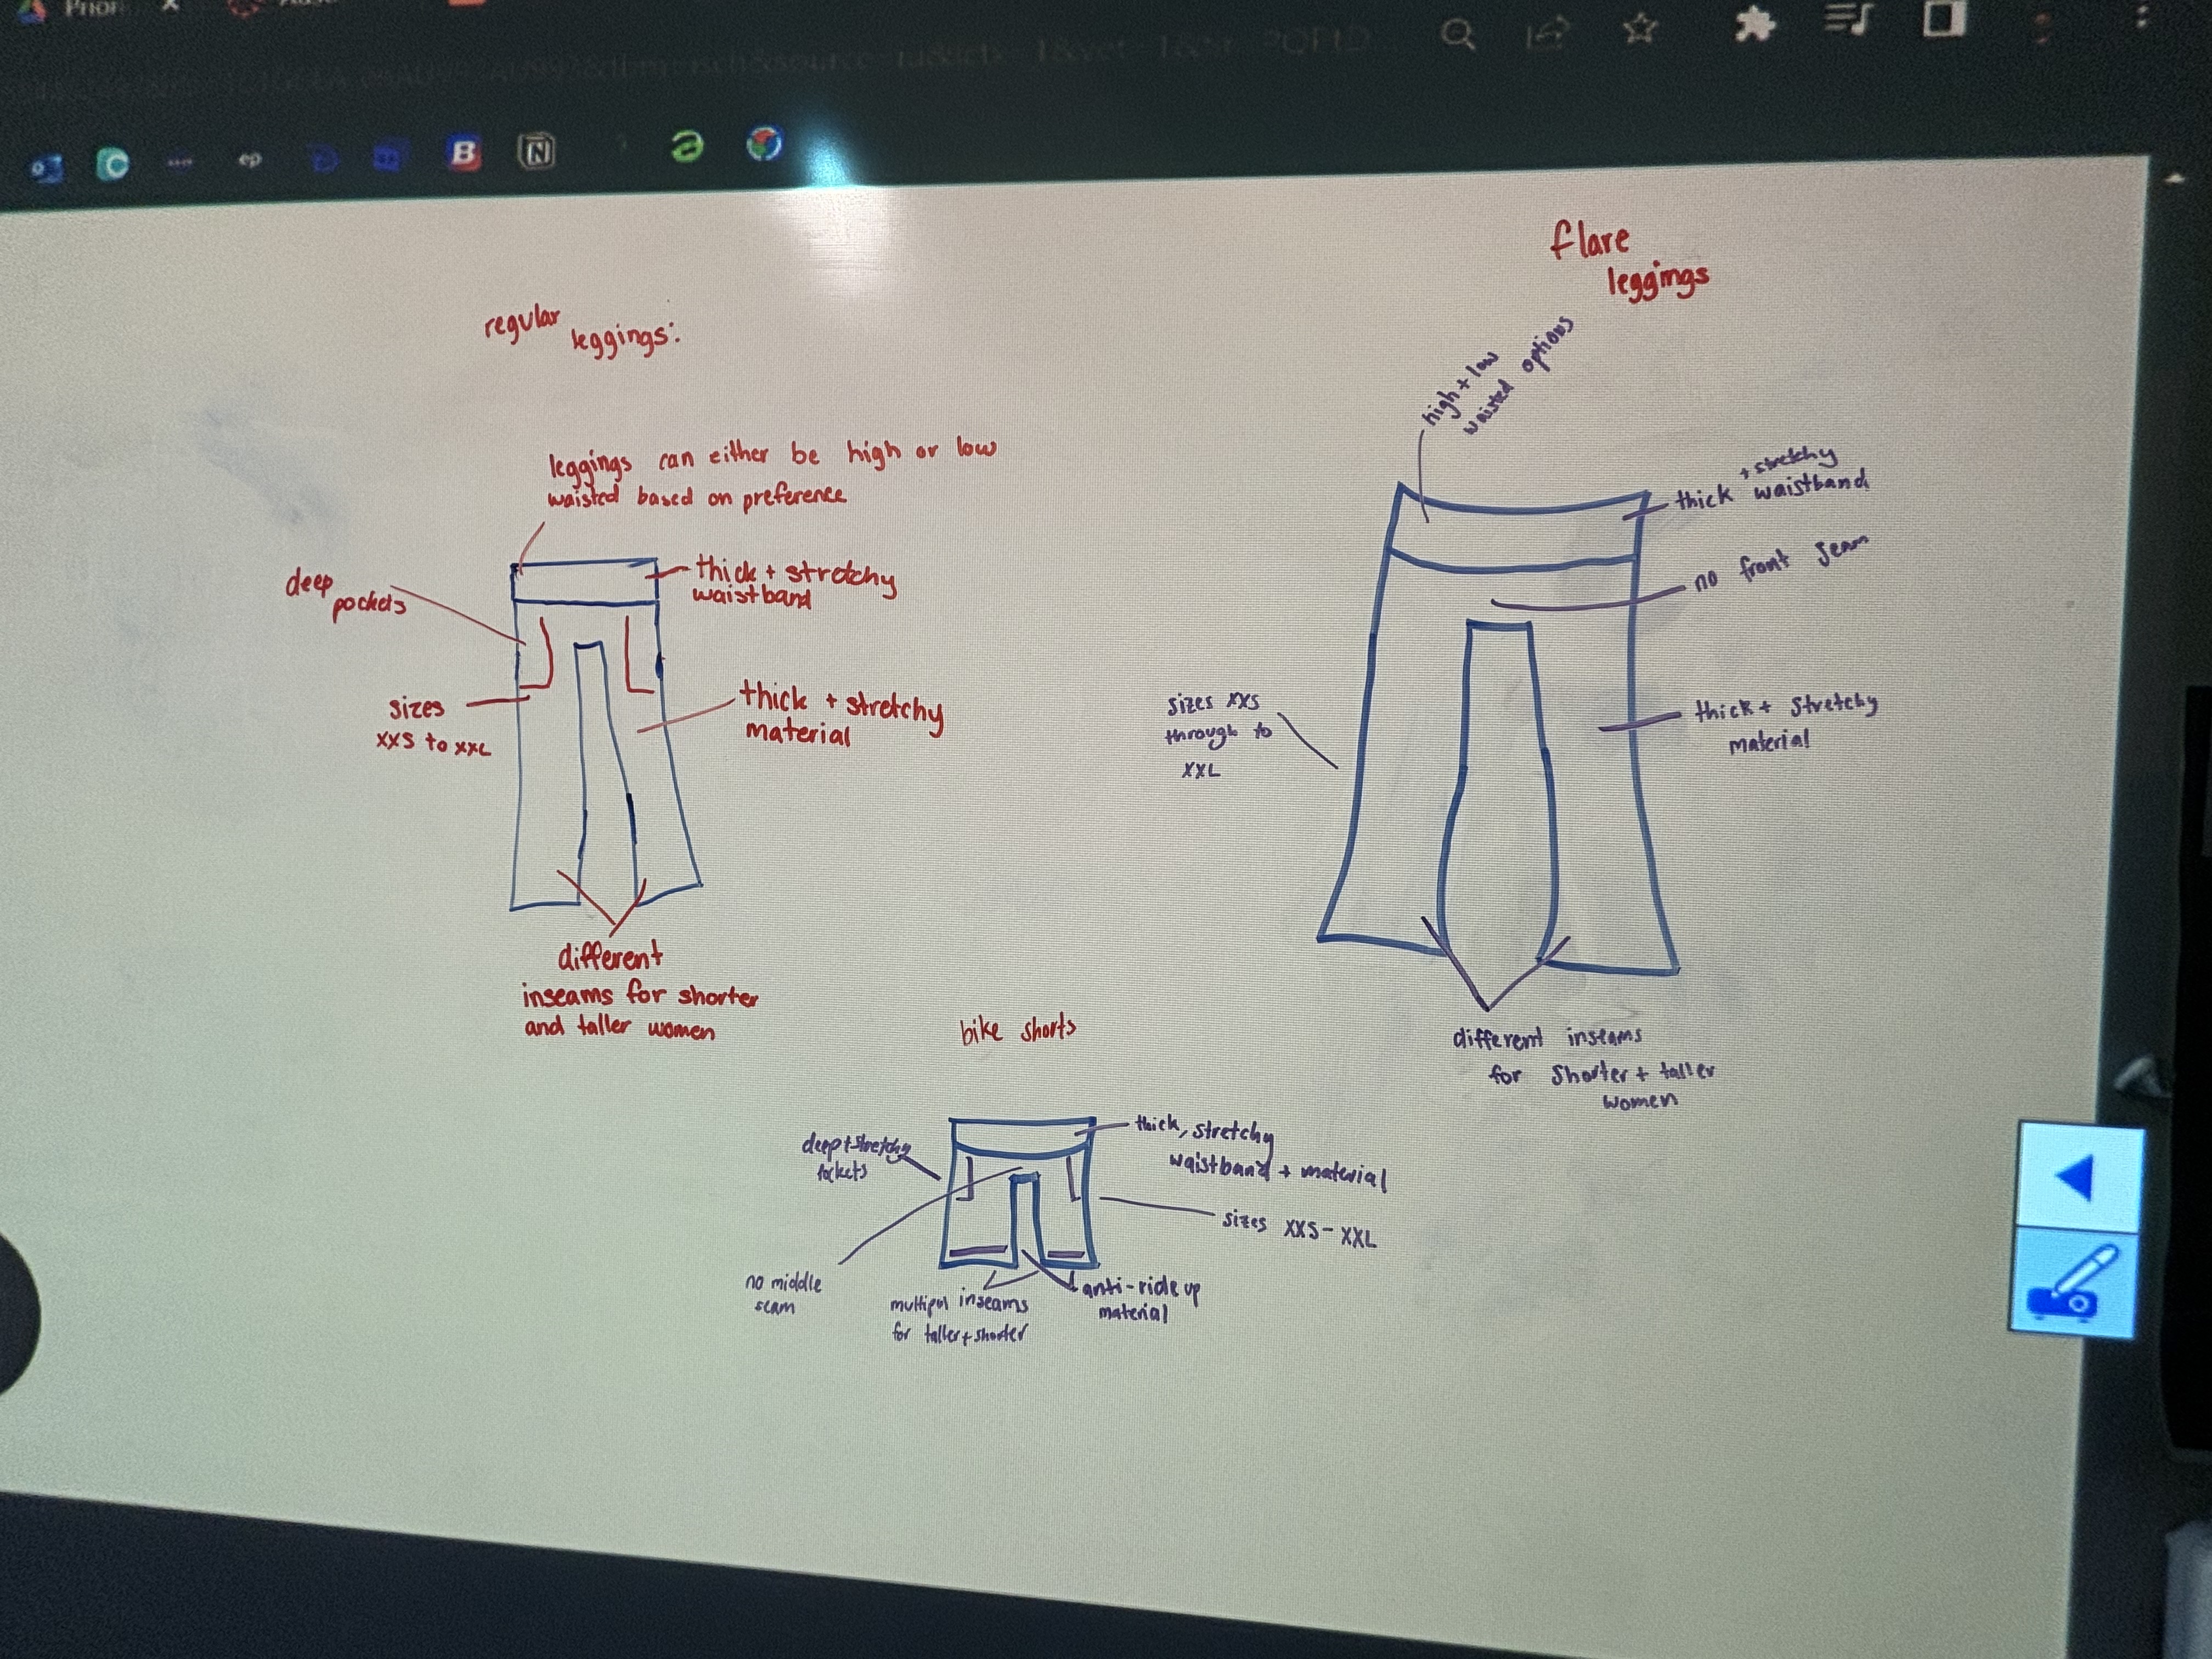 Prior
ep
B
N
regular
leggings:
leggings can either be high or low
waisted based on preference
deep
pockets
thick + stretchy
waistband
sizes
xxs to xxL
thick + stretchy
material
different
inseams for shorter
and taller women
flare
leggings
high + low
waisted options
+ stretchy
thick waistband
no front seam
sizes xxs
through to
XXL
thick + stretchy
material
different inseams
for shorter + taller
women
bike shorts
deep + stretchy
pockets
thick, stretchy
waistband + material
sizes XXS - XXL
no middle
seam
multipul inseams
for taller + shorter
anti-ride up
material